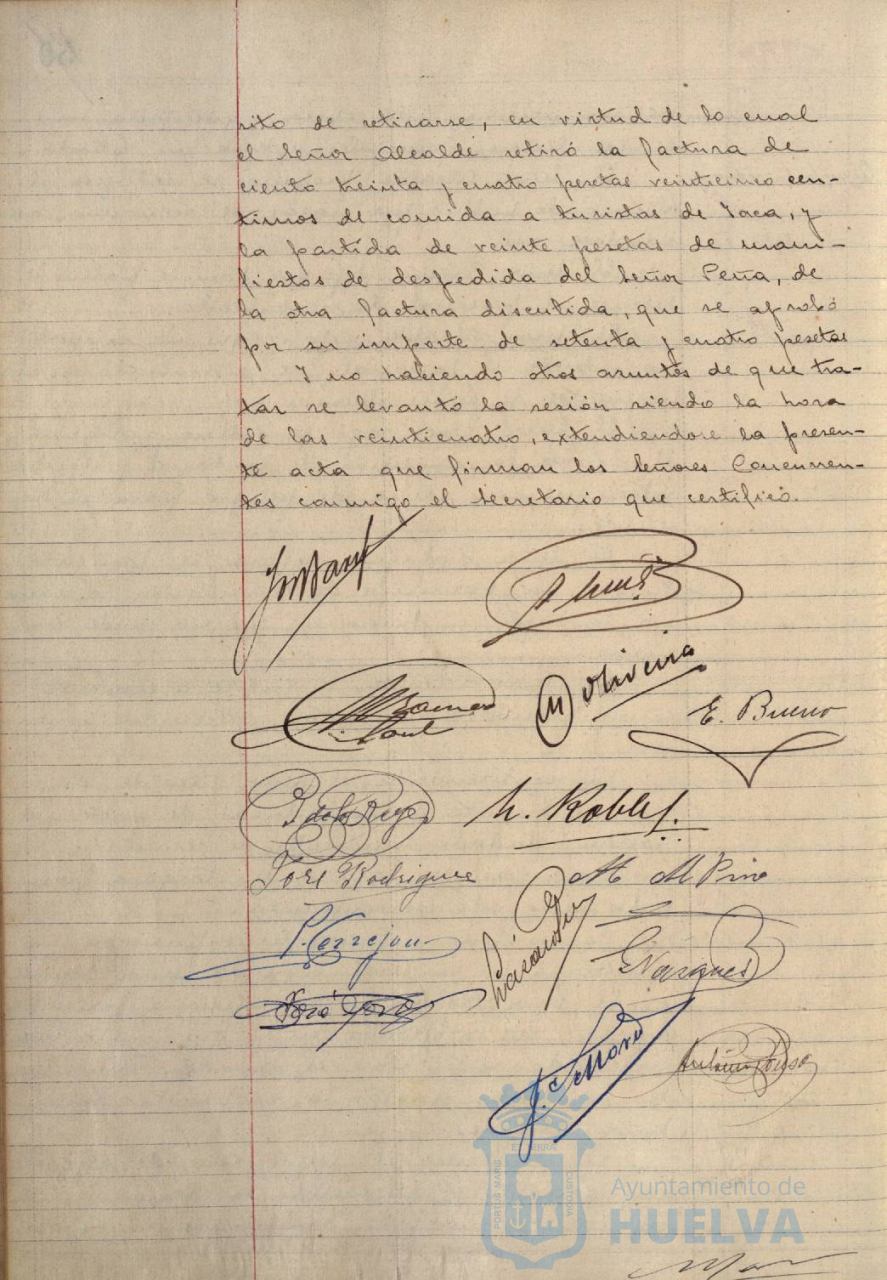 sito de retirarse, en virtud de lo cual
el Señor Alcalde retiró la factura de
ciento treinta y cuatro pesetas veinticinco cen-
timos de comida a turistas de Jaca, y
la partida de veinte pesetas de mani-
fiestos de despedida del Señor Peña, de
la otra factura discutida, que se aprobó
por su importe de setenta y cuatro pesetas
Y no habiendo otros asuntos de que tra-
tar se levantó la sesión siendo la hora
de las veinticuatro, extendiendose la presen-
te acta que firman los Señores Concurren-
tes conmigo el Secretario que certifico.
M Oliveira
E. Bueno
M. Robles.
José Rodriguez
M Pino
P. Cerrejon
E Vazquez
José
Antonio Pousa
PORTUS MARIS
CUSTODIA
Ayuntamiento de
HUELVA